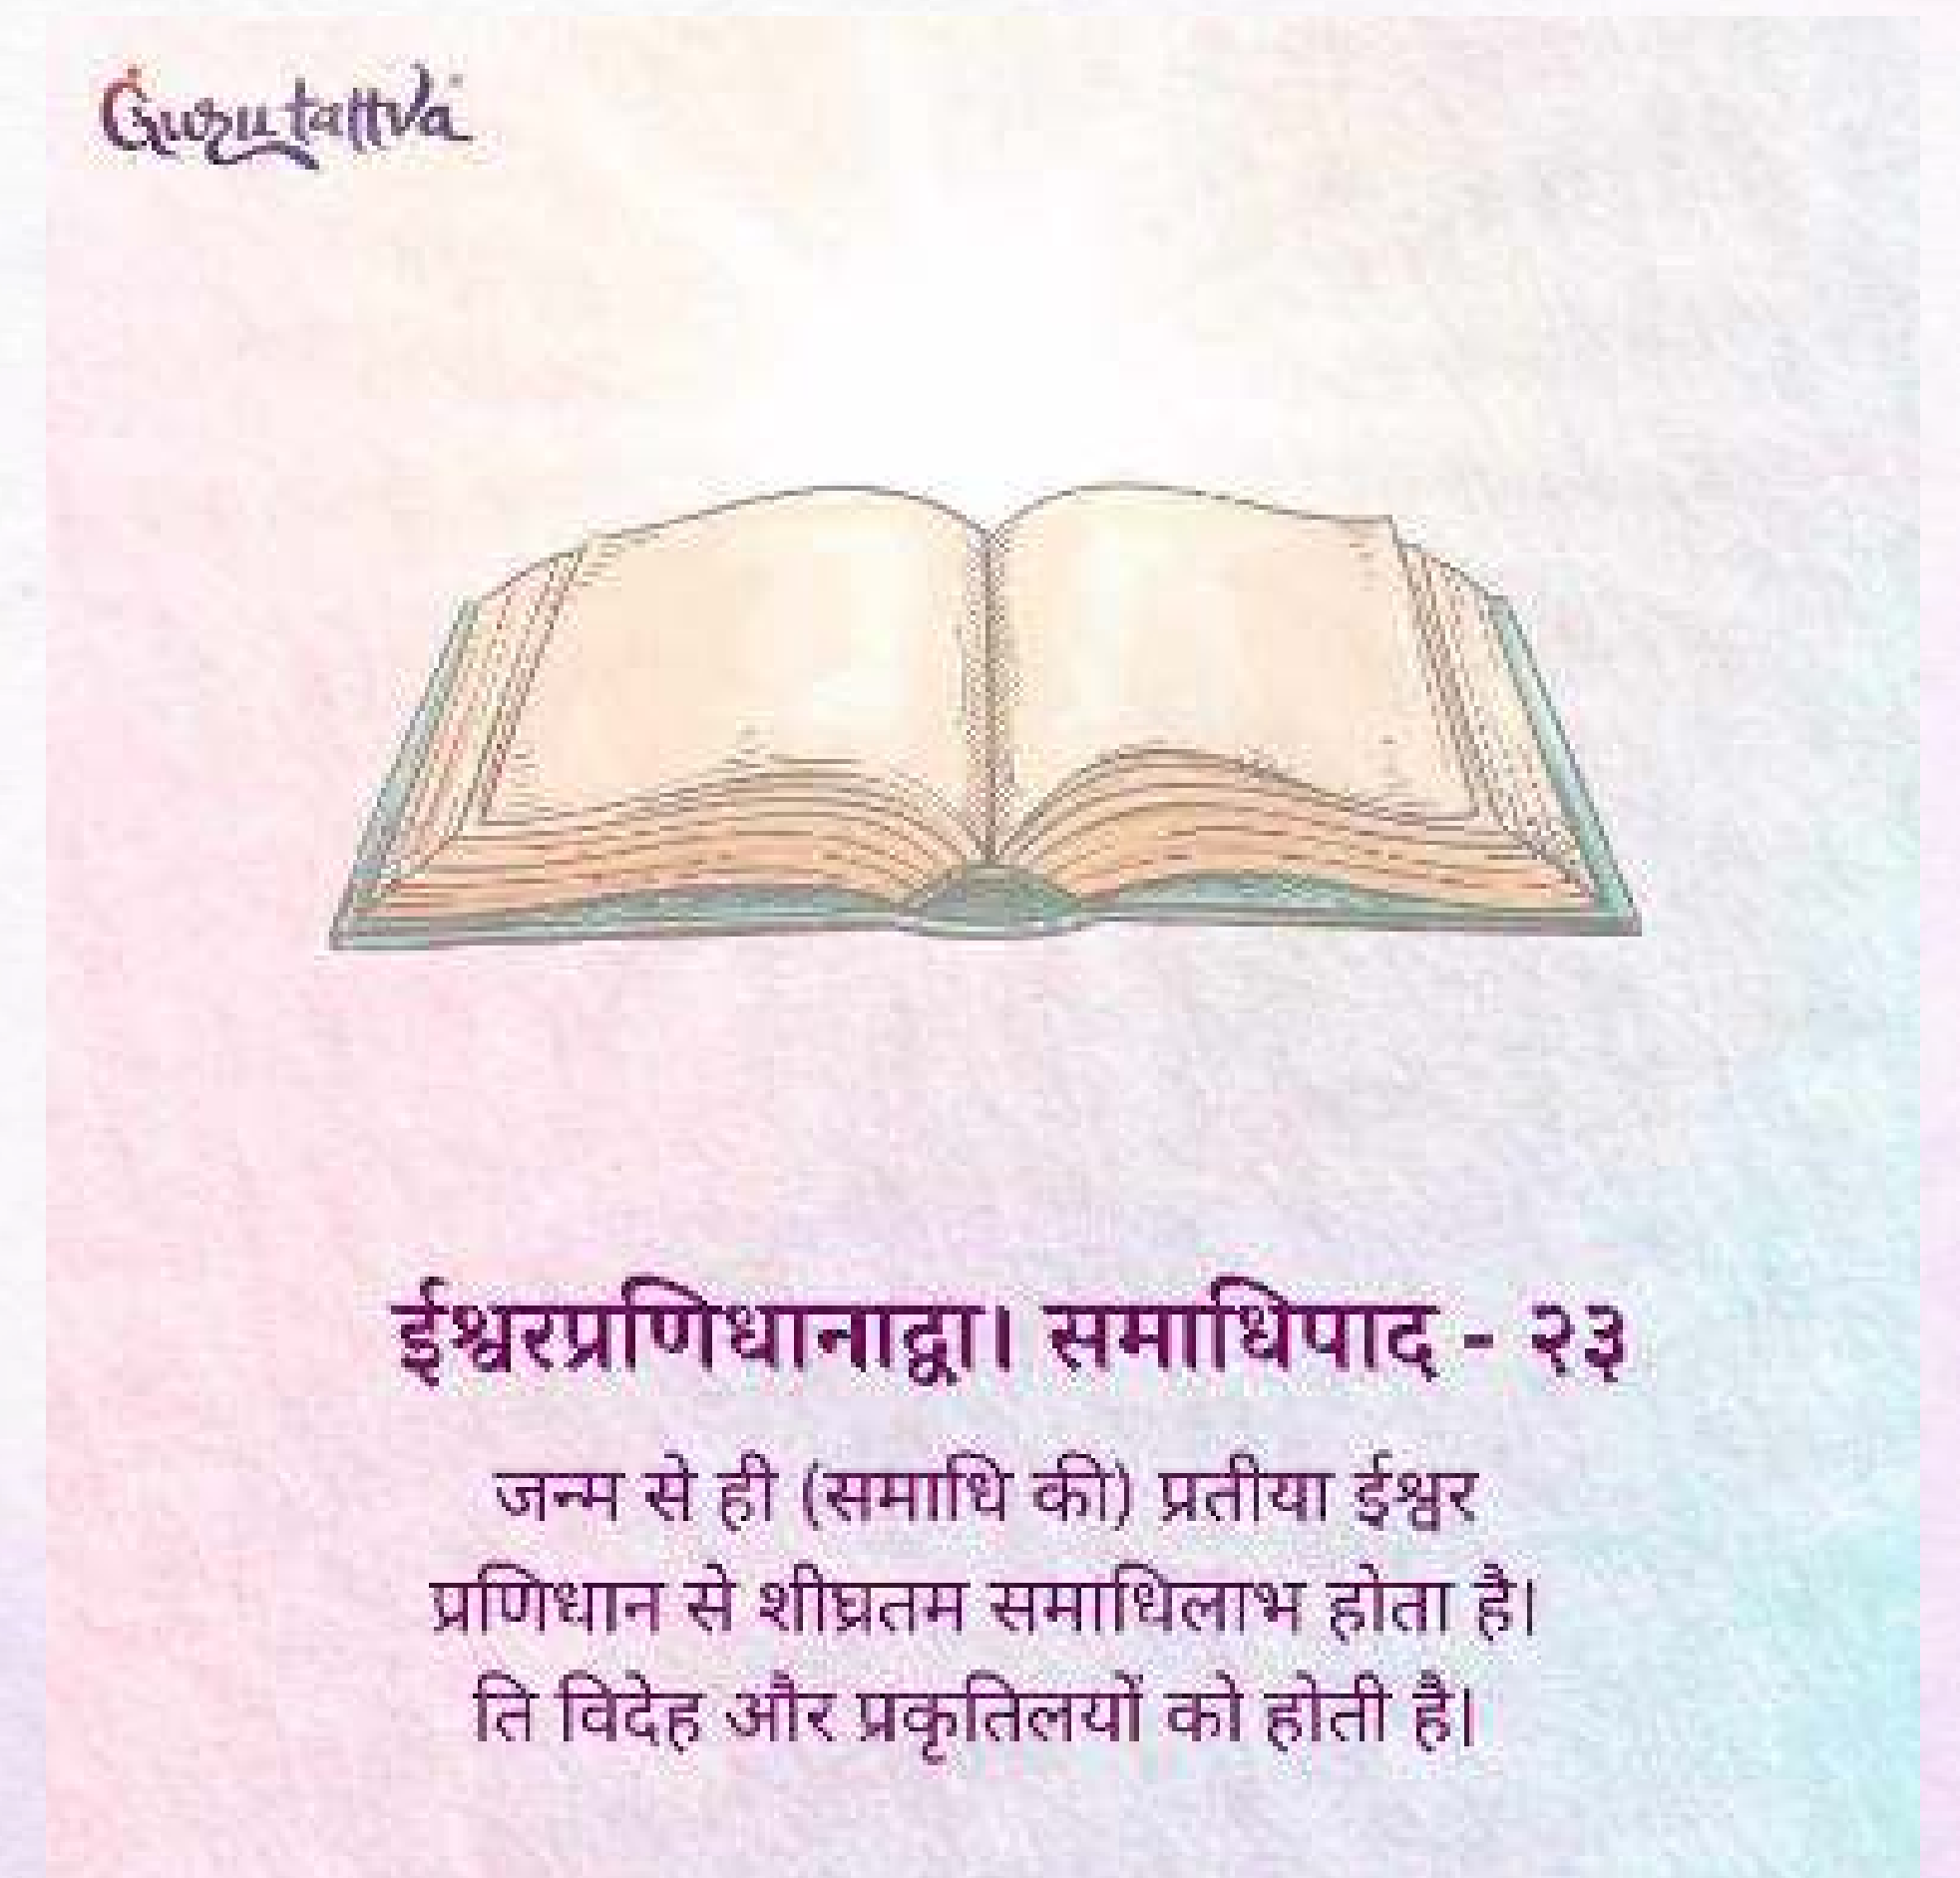 Gurutattva
ईश्वरप्रणिधानाद्वा। समाधिपाद - २३
जन्म से ही (समाधि की) प्रतीया ईश्वर
प्रणिधान से शीघ्रतम समाधिलाभ होता है।
ति विदेह और प्रकृतिलयों को होती है।